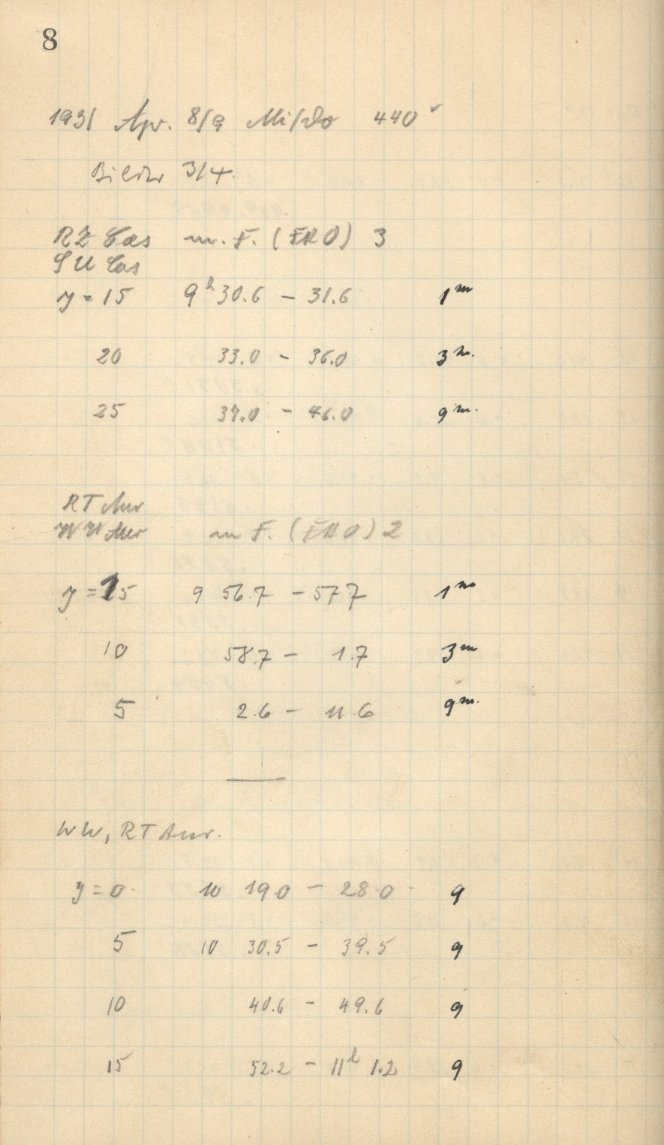 8
1931 Apr. 8/9 Mi/Do 440
Bilder 3/4
RZ Cas m. F. (ERO) 3
SU Cas
y = 15 9h 30.6 – 31.6 1m
20 33.0 – 36.0 3m.
25 37.0 – 46.0 9m.
RT Aur
WW Aur m F. (ERO) 2
y = 15 9 56.7 – 57.7 1m
10 58.7 – 1.7 3m
5 2.6 – 11.6 9m.
WW, RT Aur.
y = 0 10 19.0 – 28.0 9
5 10 30.5 – 39.5 9
10 40.6 – 49.6 9
15 52.2 – 11h 1.2 9